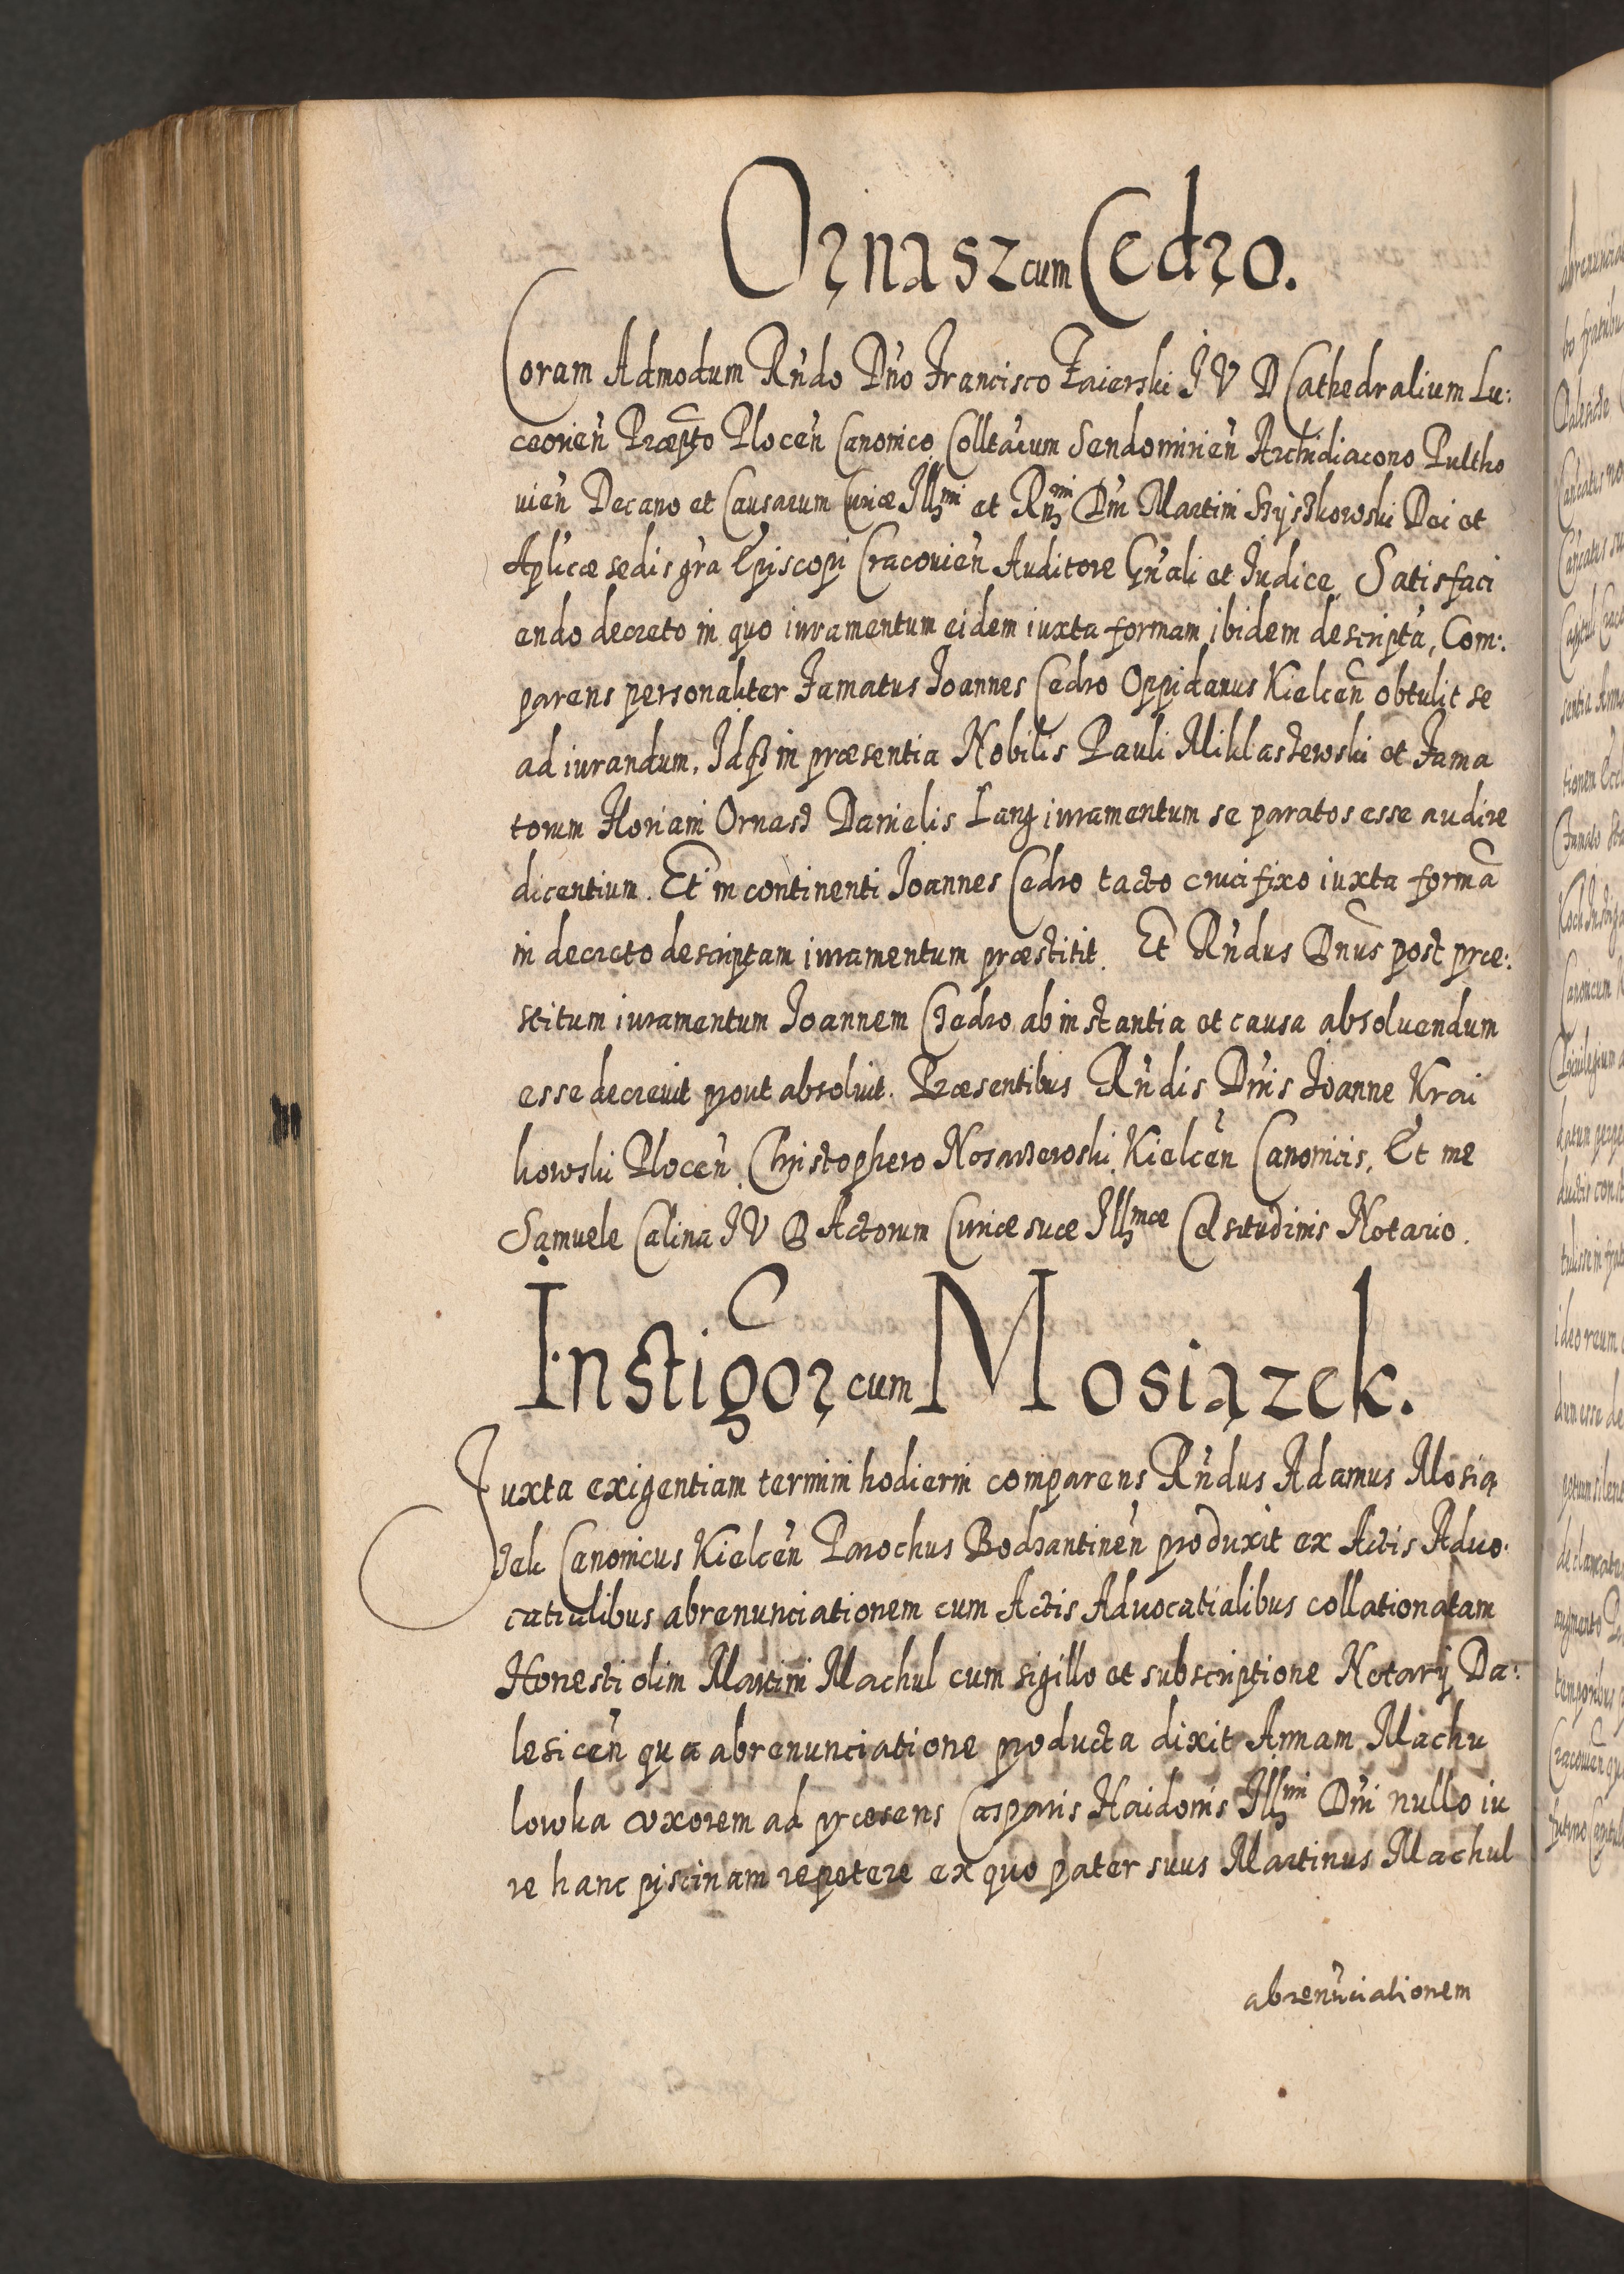 Ornasz cum Cedro.
Coram Admodum Rndo Dno Francisco Zaierski I V D Cathedralium Lu:
ceorien Præpto Plocen Canonico, Colltarum Sendomirien Archidiacono Pultho
vien Decano et Causarum Curiæ Illmi et Rmi Dni Martini Szyszkowski Dei et
Aplicæ sedis gra Episcopi Cracovien Auditore Gnali et Iudice, Satisfaci
endo decreto in quo iuramentum eidem iuxta formam ibidem descripta, Com:
parens personaliter Famatus Ioannes Cedro Oppidanus Kielcen obtulit se
ad iurandum, Idq in præsentia Nobilis Pauli Miklaszewski et Fama
torum Floriani Ornasz Danielis Lang iuramentum se paratos esse audire
dicentium. Et in continenti Ioannes Cedro tacto crucifixo iuxta forma
in decreto descriptam iuramentum præstitit. Et Rndus Dnus post præ:
stitum iuramentum Ioannem Czedro ab instantia et causa absoluendum
esse decrevit prout absolvit. Præsentibus Rndis Dnis Ioanne Krai
kowski Plocen, Christophero Nosarzewski, Kielcen Canonicis, Et me
Samuele Calina I V D Actorum Curiæ suæ Illmæ Celsitudinis Notario.
Instigor cum Mosiązek.
Iuxta exigentiam termini hodierni comparens Rndus Adamus Mosią
zek Canonicus Kielcen Parochus Bodzantinen produxit ex Actis Advo:
catialibus abrenunciationem cum Actis Advocatialibus collationatam
Honesti olim Martini Machul cum sigillo et subscriptione Notarij Da:
lesicen qua abrenunciatione producta dixit Annam Machu
lowka uxorem ad præsens Casparis Haidonis Illmi Dni nullo iu
re hanc piscinam repetere ex quo pater suus Martinus Machul
abrenunciationem